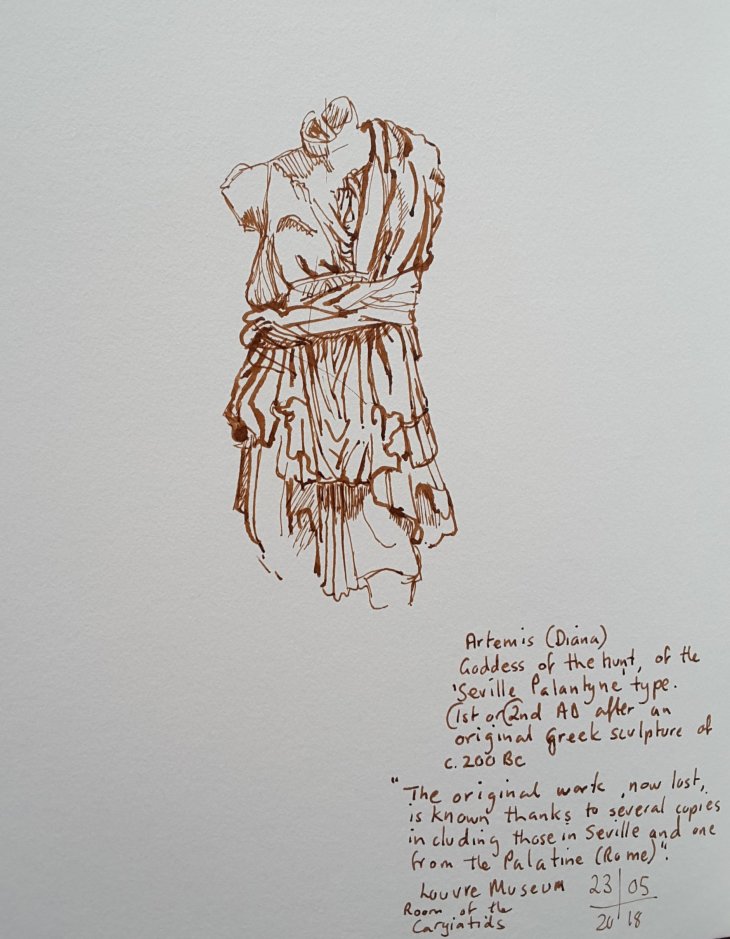 Artemis (Diana)
Goddess of the hunt, of the
'Seville Palantyne' type.
(1st or (2nd AD after an
original Greek sculpture of
c. 200 BC
"The original work, now lost,
is known thanks to several copies
including those in Seville and one
from the Palatine (Rome)".
Louvre Museum 23 | 05
Room of the
Caryiatids 20 | 18